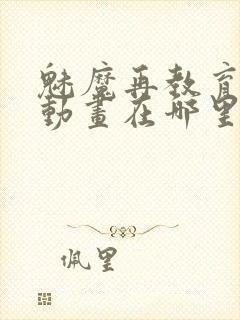 魅魔再教育
動畫在哪里
佩里